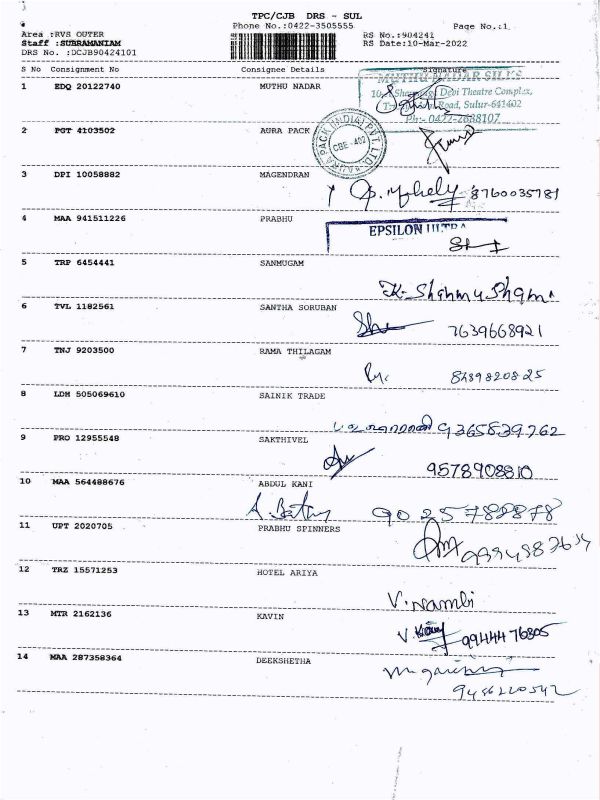 TPC/CJB DRS - SUL
Phone No.:0422-3505555
Page No.:1
Area :RVS OUTER
RS No.:904241
Staff :SUBRAMANIAM
RS Date:10-Mar-2022
DRS No. :DCJB90424101
S No Consignment No Consignee Details Signature
MUTHU NADAR SILKS
1 EDQ 20122740 MUTHU NADAR
Devi Theatre Complex,
Road, Sulur-641402
Ph:- 0422-2688107
2 PGT 4103502 AURA PACK
AURA PACK (INDIA) PVT. LTD.
CBE - 402
3 DPI 10058882 MAGENDRAN
8760035781
4 MAA 941511226 PRABHU
EPSILON ULTRA
5 TRP 6454441 SANMUGAM
K. Shanmugham
6 TVL 1182561 SANTHA SORUBAN
7639668921
7 TNJ 9203500 RAMA THILAGAM
8489820825
8 LDM 505069610 SAINIK TRADE
9365839762
9 PRO 12955548 SAKTHIVEL
9578908810
10 MAA 564488676 ABDUL KANI
9025782878
11 UPT 2020705 PRABHU SPINNERS
12 TRZ 15571253 HOTEL ARIYA
V. Nambi
13 MTR 2162136 KAVIN
9944476805
14 MAA 287358364 DEEKSHETHA